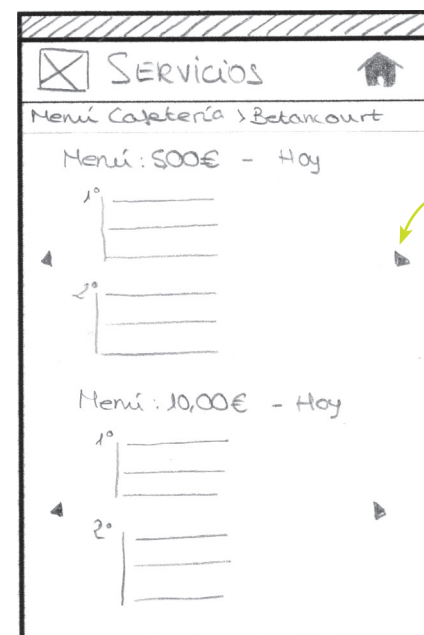 Servicios
Menú Cafetería > Betancourt
Menú: 500€ - Hoy
1º
2º
Menú: 10,00€ - Hoy
1º
2º